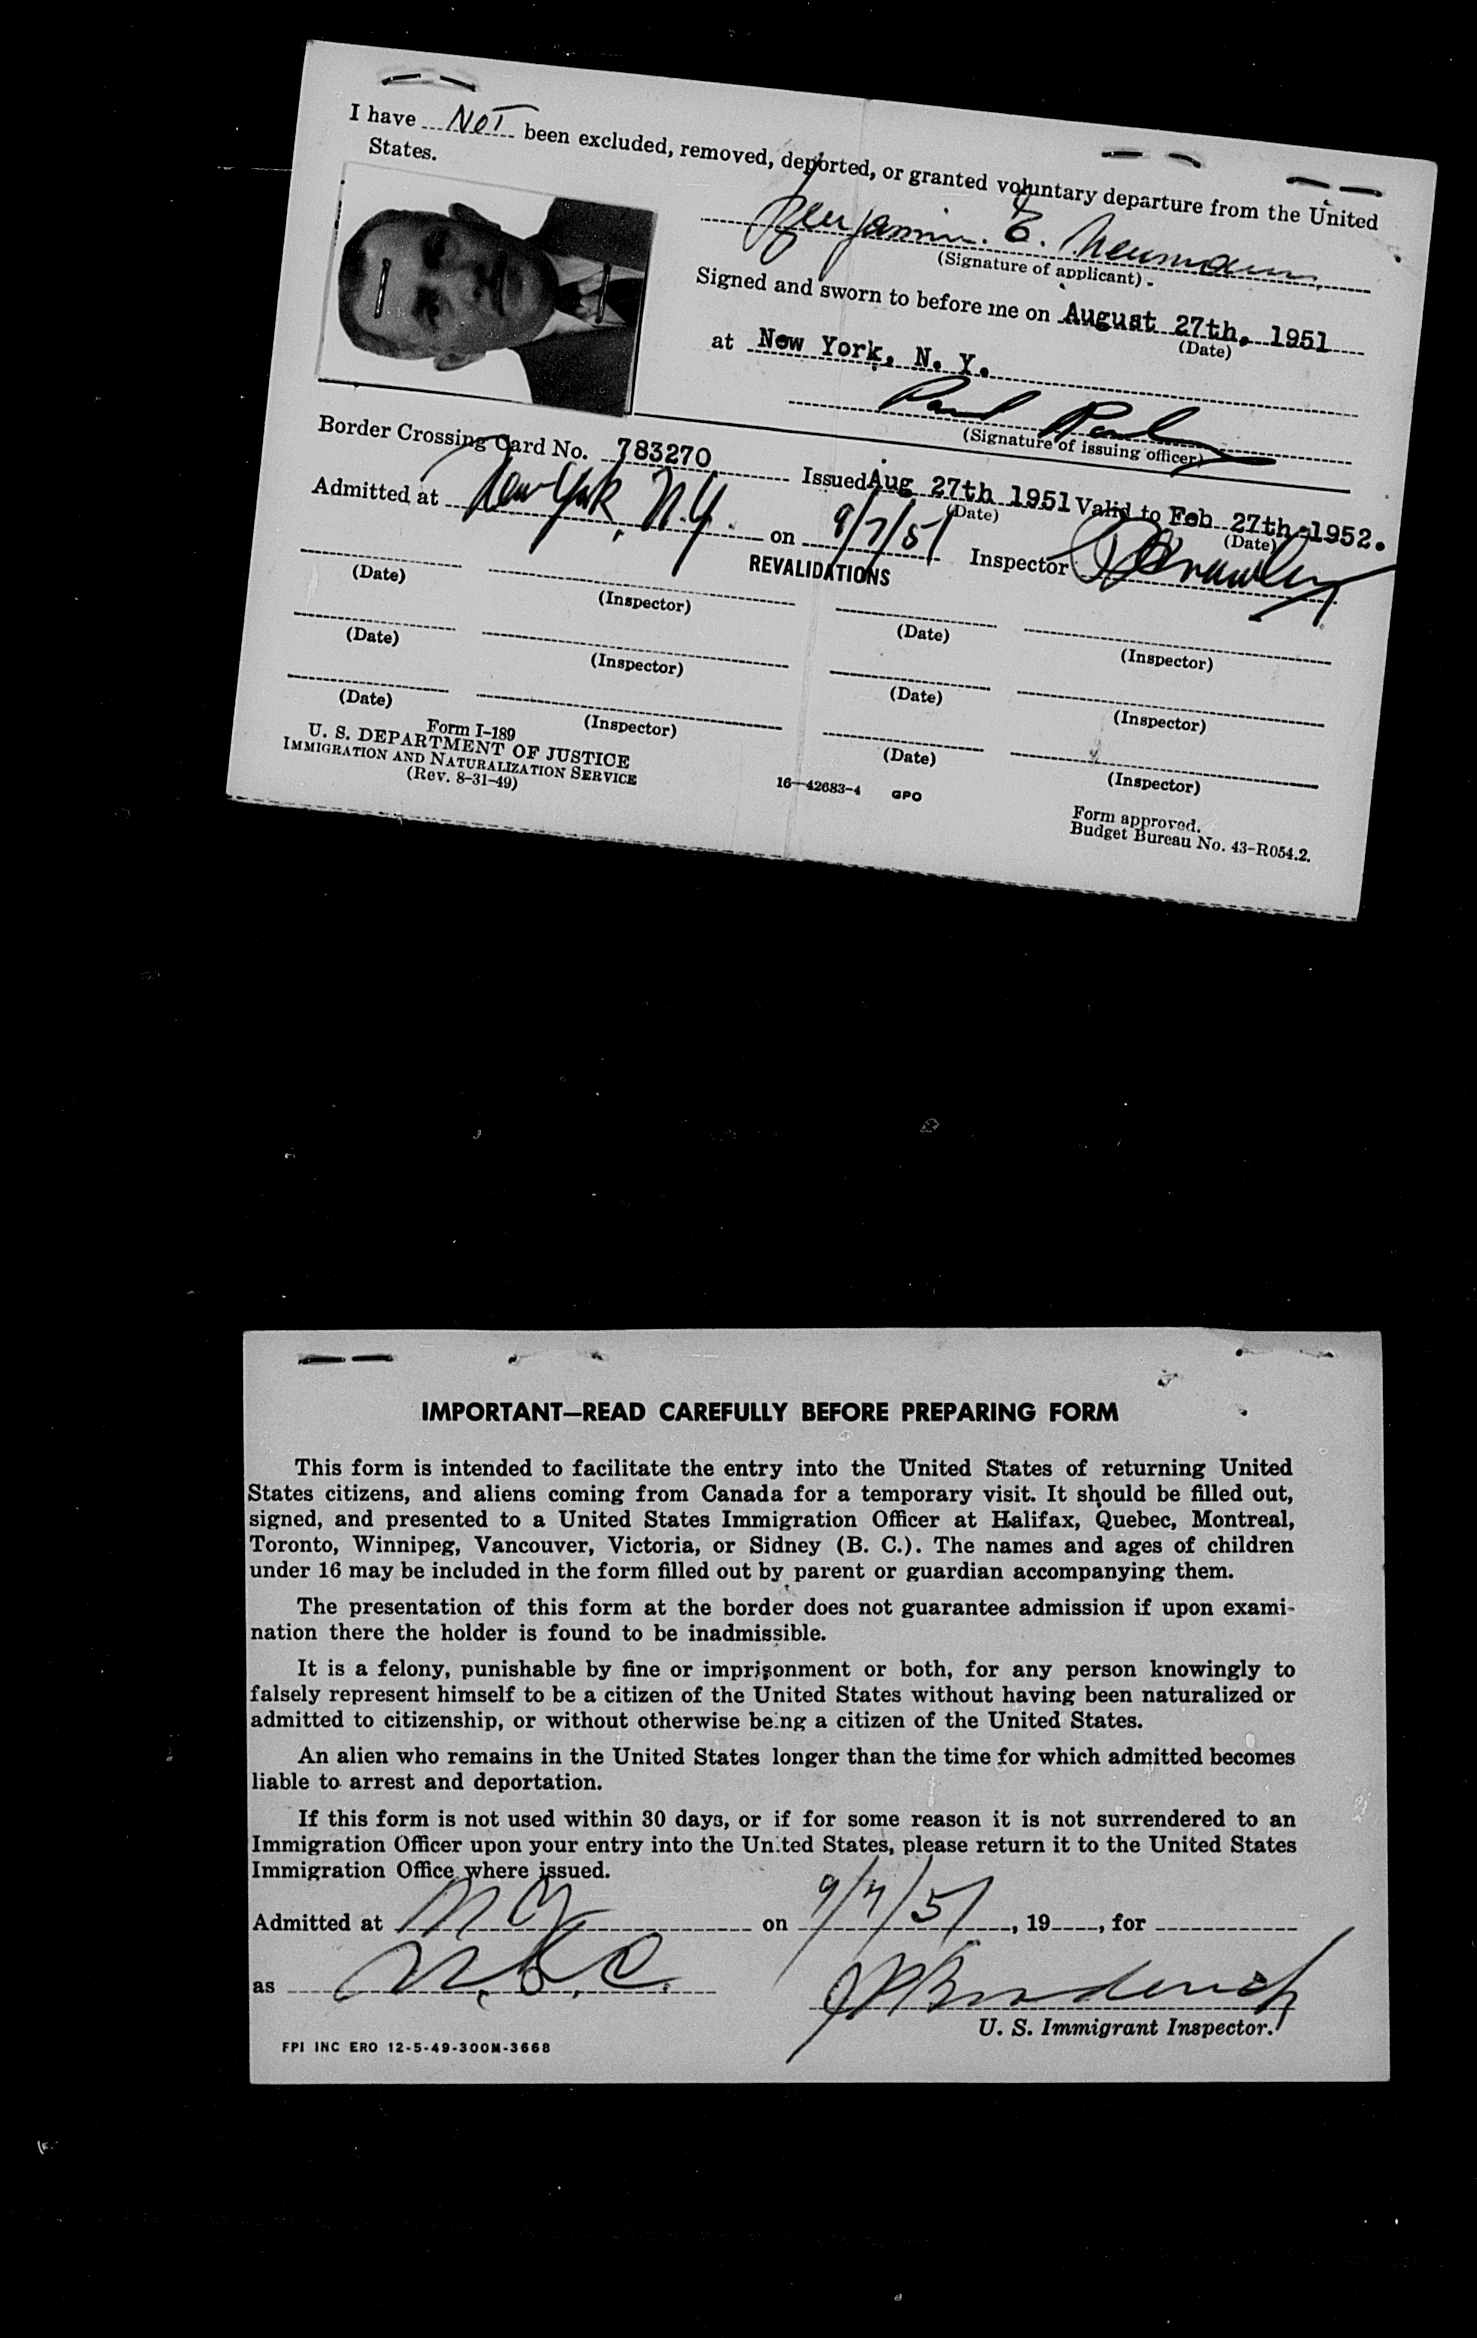 I have NOT been excluded, removed, deported, or granted voluntary departure from the United
States.
Benjamin. E. Neumann
(Signature of applicant)
Signed and sworn to before me on August 27th, 1951
(Date)
at New York, N. Y.
Paul
(Signature of issuing officer)
Border Crossing Card No. 783270 Issued Aug 27th 1951 Valid to Feb 27th, 1952.
(Date) (Date)
Admitted at New York, N.Y. on 9/7/51 Inspector
REVALIDATIONS
(Date) (Inspector) (Date) (Inspector)
(Date) (Inspector) (Date) (Inspector)
(Date) (Inspector) (Date) (Inspector)
Form I-189
U. S. DEPARTMENT OF JUSTICE
IMMIGRATION AND NATURALIZATION SERVICE
(Rev. 8-31-49)
16—42683-4 GPO
Form approved.
Budget Bureau No. 43-R054.2.
IMPORTANT—READ CAREFULLY BEFORE PREPARING FORM
This form is intended to facilitate the entry into the United States of returning United
States citizens, and aliens coming from Canada for a temporary visit. It should be filled out,
signed, and presented to a United States Immigration Officer at Halifax, Quebec, Montreal,
Toronto, Winnipeg, Vancouver, Victoria, or Sidney (B. C.). The names and ages of children
under 16 may be included in the form filled out by parent or guardian accompanying them.
The presentation of this form at the border does not guarantee admission if upon exami-
nation there the holder is found to be inadmissible.
It is a felony, punishable by fine or imprisonment or both, for any person knowingly to
falsely represent himself to be a citizen of the United States without having been naturalized or
admitted to citizenship, or without otherwise being a citizen of the United States.
An alien who remains in the United States longer than the time for which admitted becomes
liable to arrest and deportation.
If this form is not used within 30 days, or if for some reason it is not surrendered to an
Immigration Officer upon your entry into the United States, please return it to the United States
Immigration Office where issued.
Admitted at NY on 9/7/51, 19, for
as
U. S. Immigrant Inspector.
FPI INC ERO 12-5-49-300M-3668